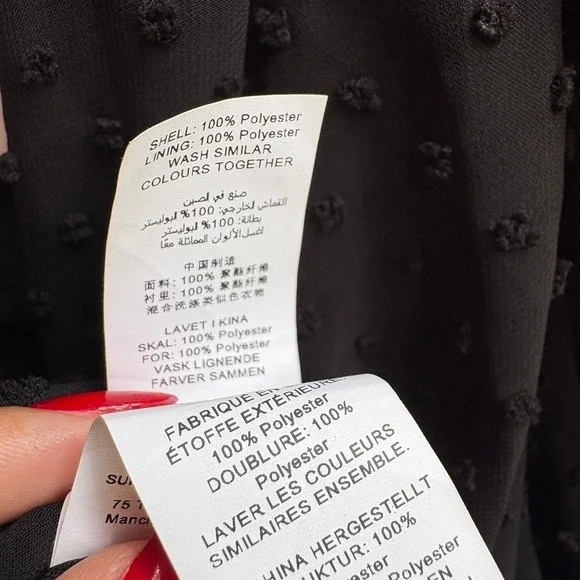 SHELL: 100% Polyester
LINING: 100% Polyester
WASH SIMILAR
COLOURS TOGETHER
صنع في الصين
القماش الخارجي: 100% البوليستر
بطانة: 100% البوليستر
اغسل الألوان المماثلة معًا
中国制造
面料: 100% 聚酯纤维
衬里: 100% 聚酯纤维
混合洗涤类似色衣物
LAVET I KINA
SKAL: 100% Polyester
FOR: 100% Polyester
VASK LIGNENDE
FARVER SAMMEN
FABRIQUÉ EN
ÉTOFFE EXTÉRIEURE
100% Polyester
DOUBLURE: 100%
Polyester
LAVER LES COULEURS
SIMILAIRES ENSEMBLE.
HINA HERGESTELLT
UKTUR: 100%
Polyester
Polyester
EN
SU
75 T
Manc